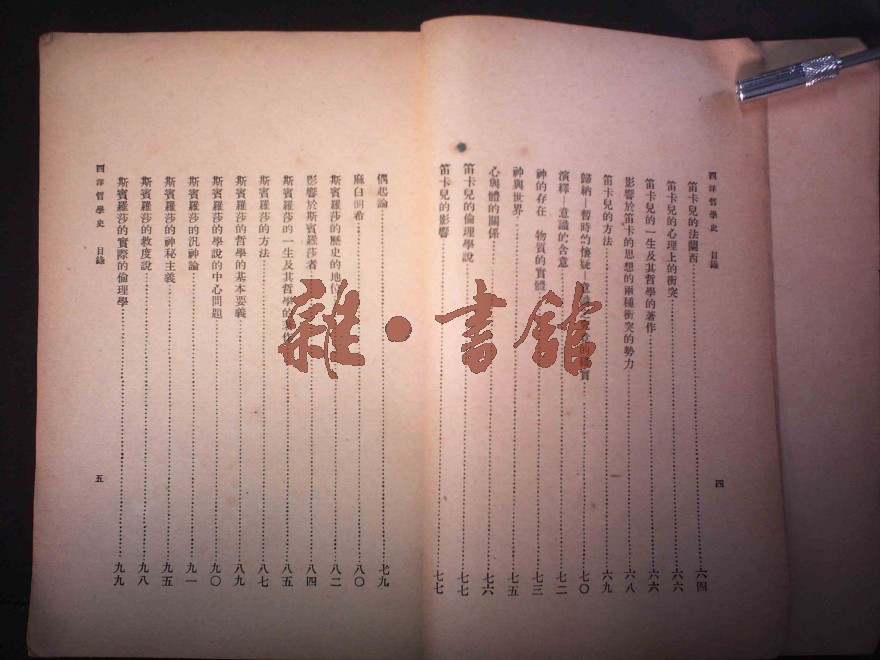 西洋哲學史 目錄
笛卡兒的法蘭西 六四
笛卡兒的心理上的衝突 六六
笛卡兒的一生及其哲學的著作 六六
影響於笛卡的思想的兩種衝突的勢力 六八
笛卡兒的方法 六九
歸納—暫時的懷疑 七〇
演釋—意識的含意 七二
神的存在 物質的實體 七三
神與世界 七五
心與體的關係 七六
笛卡兒的倫理學說 七七
笛卡兒的影響 七七
四
偶起論 七九
麻白蘭希 八〇
斯賓羅莎的歷史的地位 八二
影響於斯賓羅莎者 八四
斯賓羅莎的一生及其哲學的著作 八五
斯賓羅莎的方法 八七
斯賓羅莎的哲學的基本要義 八九
斯賓羅莎的學說的中心問題 九〇
斯賓羅莎的汎神論 九一
斯賓羅莎的神秘主義 九五
斯賓羅莎的救度說 九八
斯賓羅莎的實際的倫理學 九九
西洋哲學史 目錄
五
雜·書館